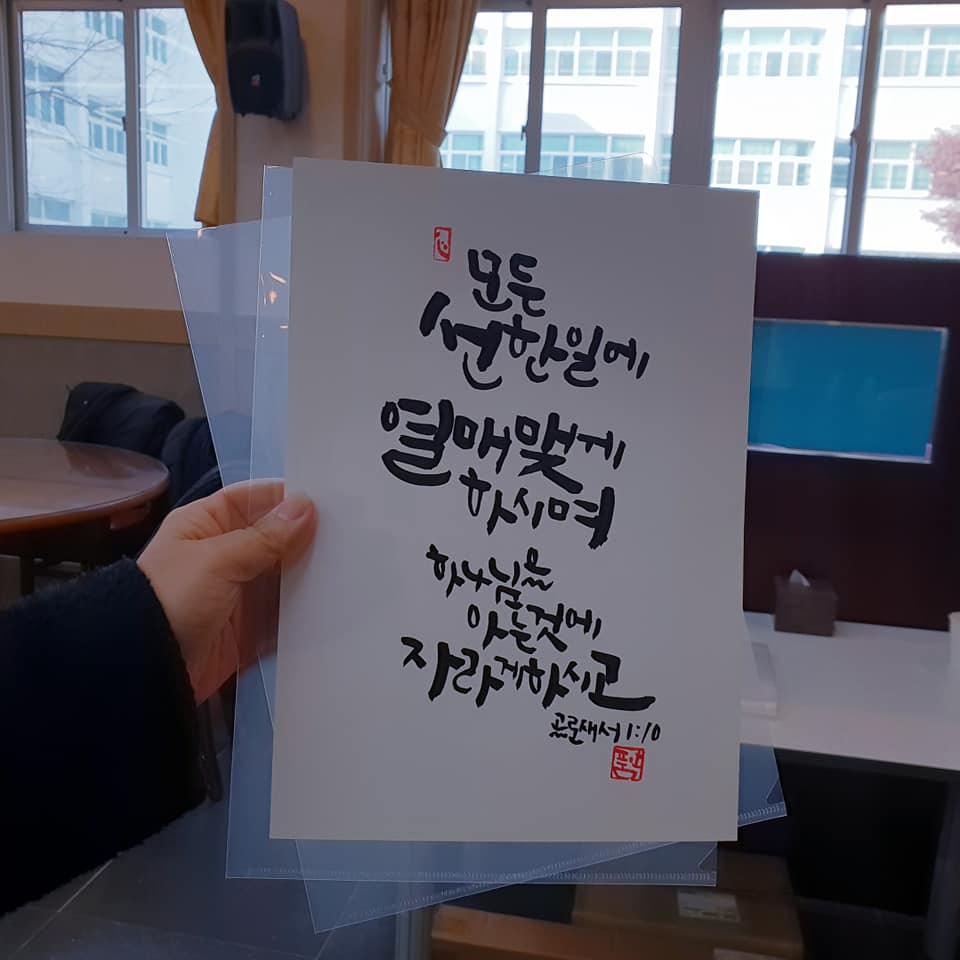 모든
선한일에
열매맺게
하시며
하나님을
아는것에
자라게하시고
골로새서 1:10